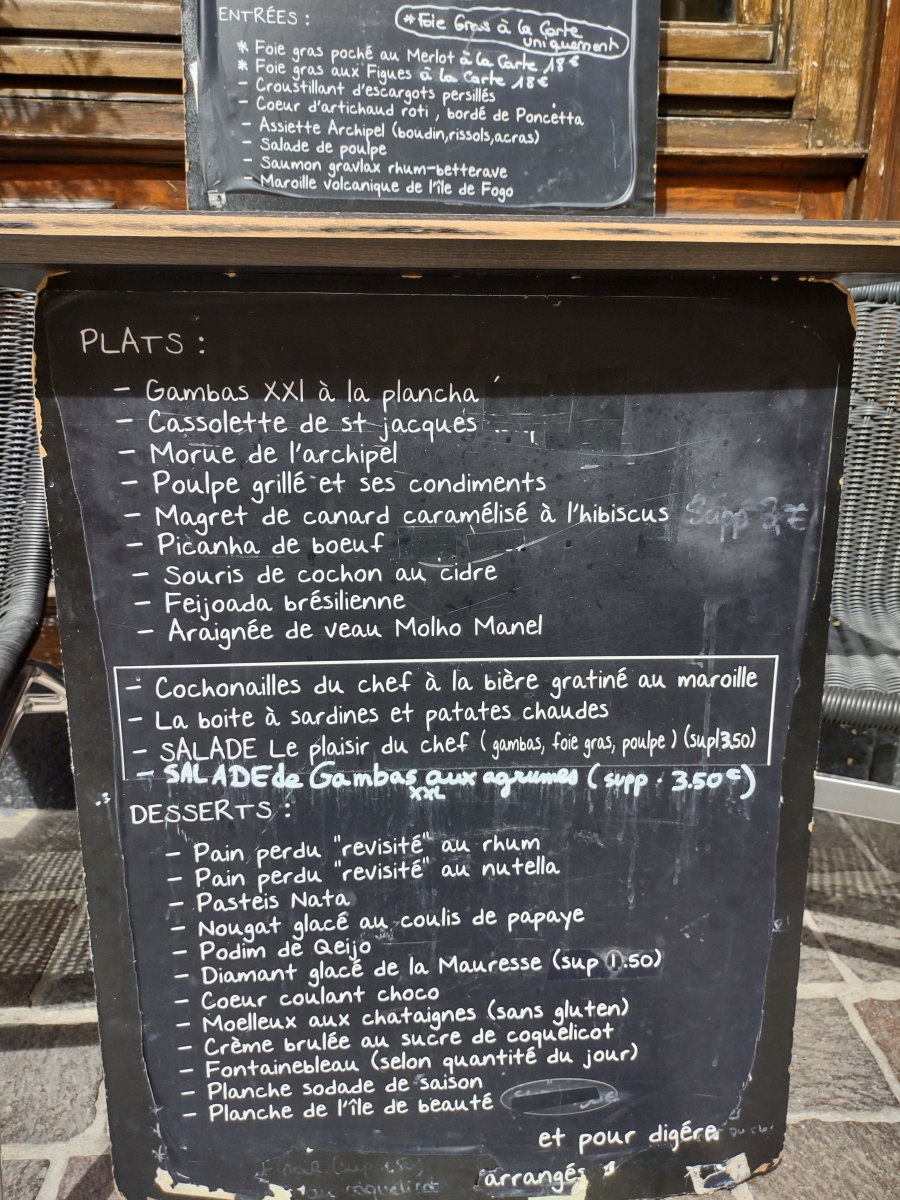 ENTRÉES :
*Foie Gras à la Carte
uniquement
* Foie gras poché au Merlot à la Carte 18€
* Foie gras aux Figues à la Carte 18€
- Croustillant d'escargots persillés
- Coeur d'artichaud roti, bordé de Poncetta
- Assiette Archipel (boudin,rissols,acras)
- Salade de poulpe
- Saumon gravlax rhum-betterave
- Maroille volcanique de l'île de Fogo
PLATS :
- Gambas XXl à la plancha
- Cassolette de st jacques
- Morue de l'archipel
- Poulpe grillé et ses condiments
- Magret de canard caramélisé à l'hibiscus Supp 3,€
- Picanha de boeuf
- Souris de cochon au cidre
- Feijoada brésilienne
- Araignée de veau Molho Manel
- Cochonailles du chef à la bière gratiné au maroille
- La boite à sardines et patates chaudes
- SALADE Le plaisir du chef (gambas, foie gras, poulpe) (supl3.50)
- SALADE de Gambas aux agrumes (supp. 3.50€)
XXL
DESSERTS :
- Pain perdu "revisité" au rhum
- Pain perdu "revisité" au nutella
- Pasteis Nata
- Nougat glacé au coulis de papaye
- Podim de Qeijo
- Diamant glacé de la Mauresse (sup 1.50)
- Coeur coulant choco
- Moelleux aux chataignes (sans gluten)
- Crème brulée au sucre de coquelicot
- Fontainebleau (selon quantité du jour)
- Planche sodade de saison
- Planche de l'île de beauté
et pour digérer
arrangés